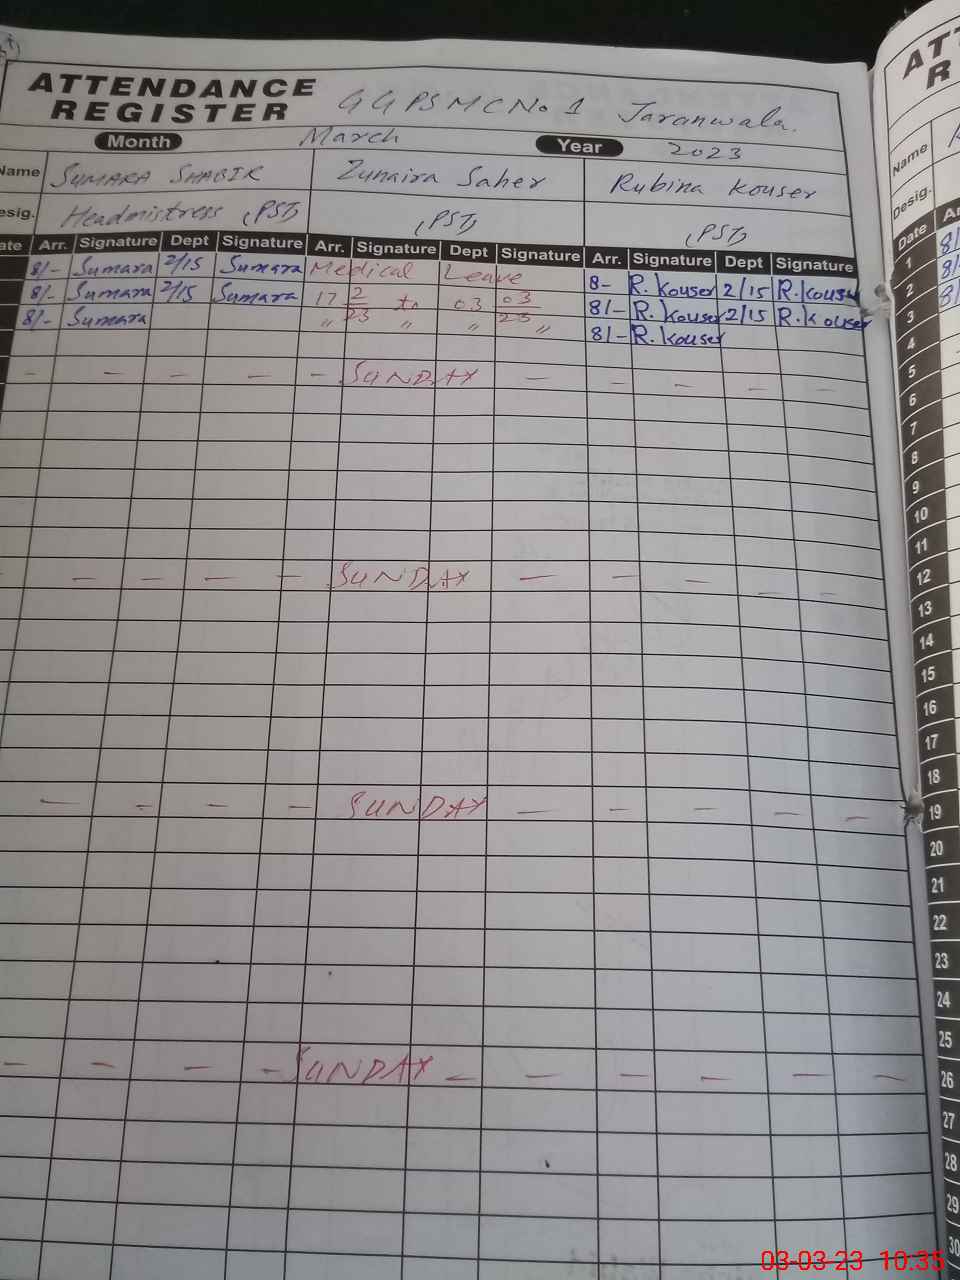 ATTENDANCE
REGISTER
GGPS MC No 1 Jaranwala.
Month March Year 2023
Name SUMARA SHABIR Zunaira Saher Rubina Kouser
Desig. Headmistress (PST) (PST) (PST)
Date Arr. Signature Dept Signature Arr. Signature Dept Signature Arr. Signature Dept Signature
8/- Sumara 2/15 Sumara Medical Leave 8- R. Kouser 2/15 R. Kouser
8/- Sumara 2/15 Sumara 17 2/23 to 03 03/23 8/- R. Kouser 2/15 R. Kouser
8/- Sumara " " " " 8/- R. Kouser
- - - - - SUNDAY - - - - -
- - - - SUNDAY - - - - -
- - - - SUNDAY - - - - -
- - - - SUNDAY - - - - - -
AT
R
Name
Desig.
Date Ar
1 8/
2 8/-
3 8/
4
5
6
7
8
9
10
11
12
13
14
15
16
17
18
19
20
21
22
23
24
25
26
27
28
29
30
03-03-23 10:35